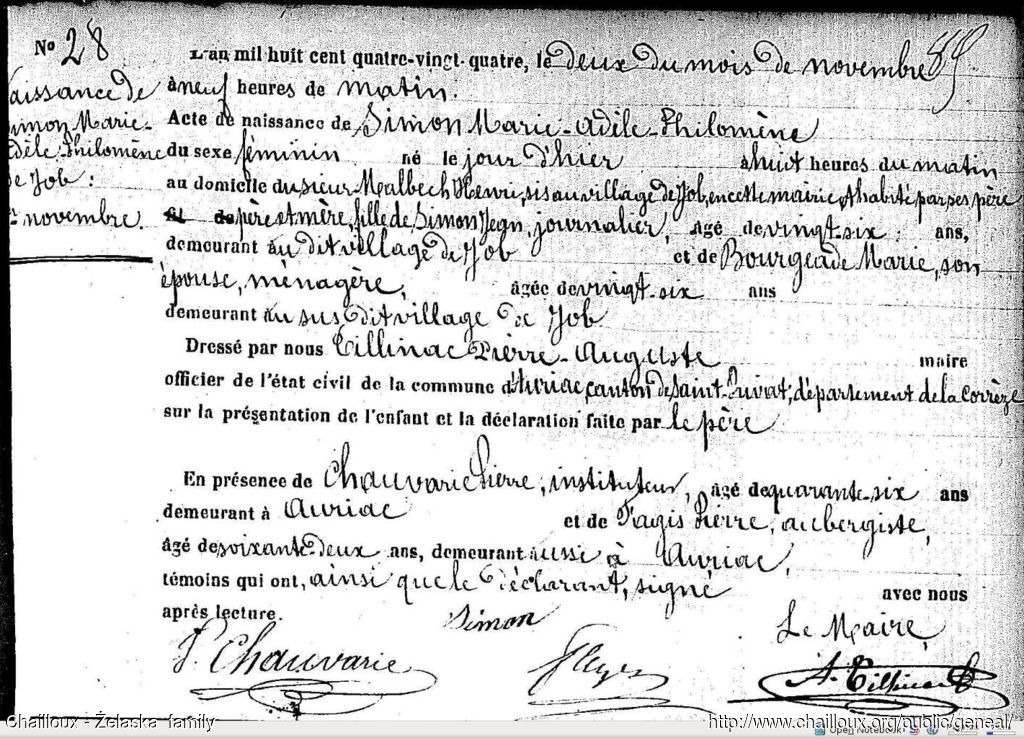 No 28
L'an mil huit cent quatre-vingt-quatre, le deux du mois de novembre
à neuf heures de matin.
Acte de naissance de Simon Marie-Adèle-Philomène
du sexe féminin né le jour d'hier à huit heures du matin
au domicile du sieur Malbech Henri, sis au village de Job, en cette mairie, et habité par ses père
et mère, fille de Simon Jean, journalier, âgé de vingt-six ans,
demeurant au dit village de Job et de Bourgeade Marie, son
épouse, ménagère, âgée de vingt-six ans
demeurant au susdit village de Job
Dressé par nous Tillinac Pierre-Auguste maire
officier de l'état civil de la commune d'Auriac, canton de Saint-Privat, département de la Corrèze
sur la présentation de l'enfant et la déclaration faite par le père
En présence de Chauvarie Pierre, instituteur, âgé de quarante-six ans
demeurant à Auriac et de Fagis Pierre, aubergiste,
âgé de soixante-deux ans, demeurant aussi à Auriac,
témoins qui ont, ainsi que le déclarant, signé avec nous
après lecture.
Simon
Le Maire,
P. Chauvarie
A. Tillinac
aissance de
imon Marie-
dèle-Philomène
de Job :
novembre.
Chailloux - Żelaska family
http://www.chailloux.org/public/geneal/
Open Notebook